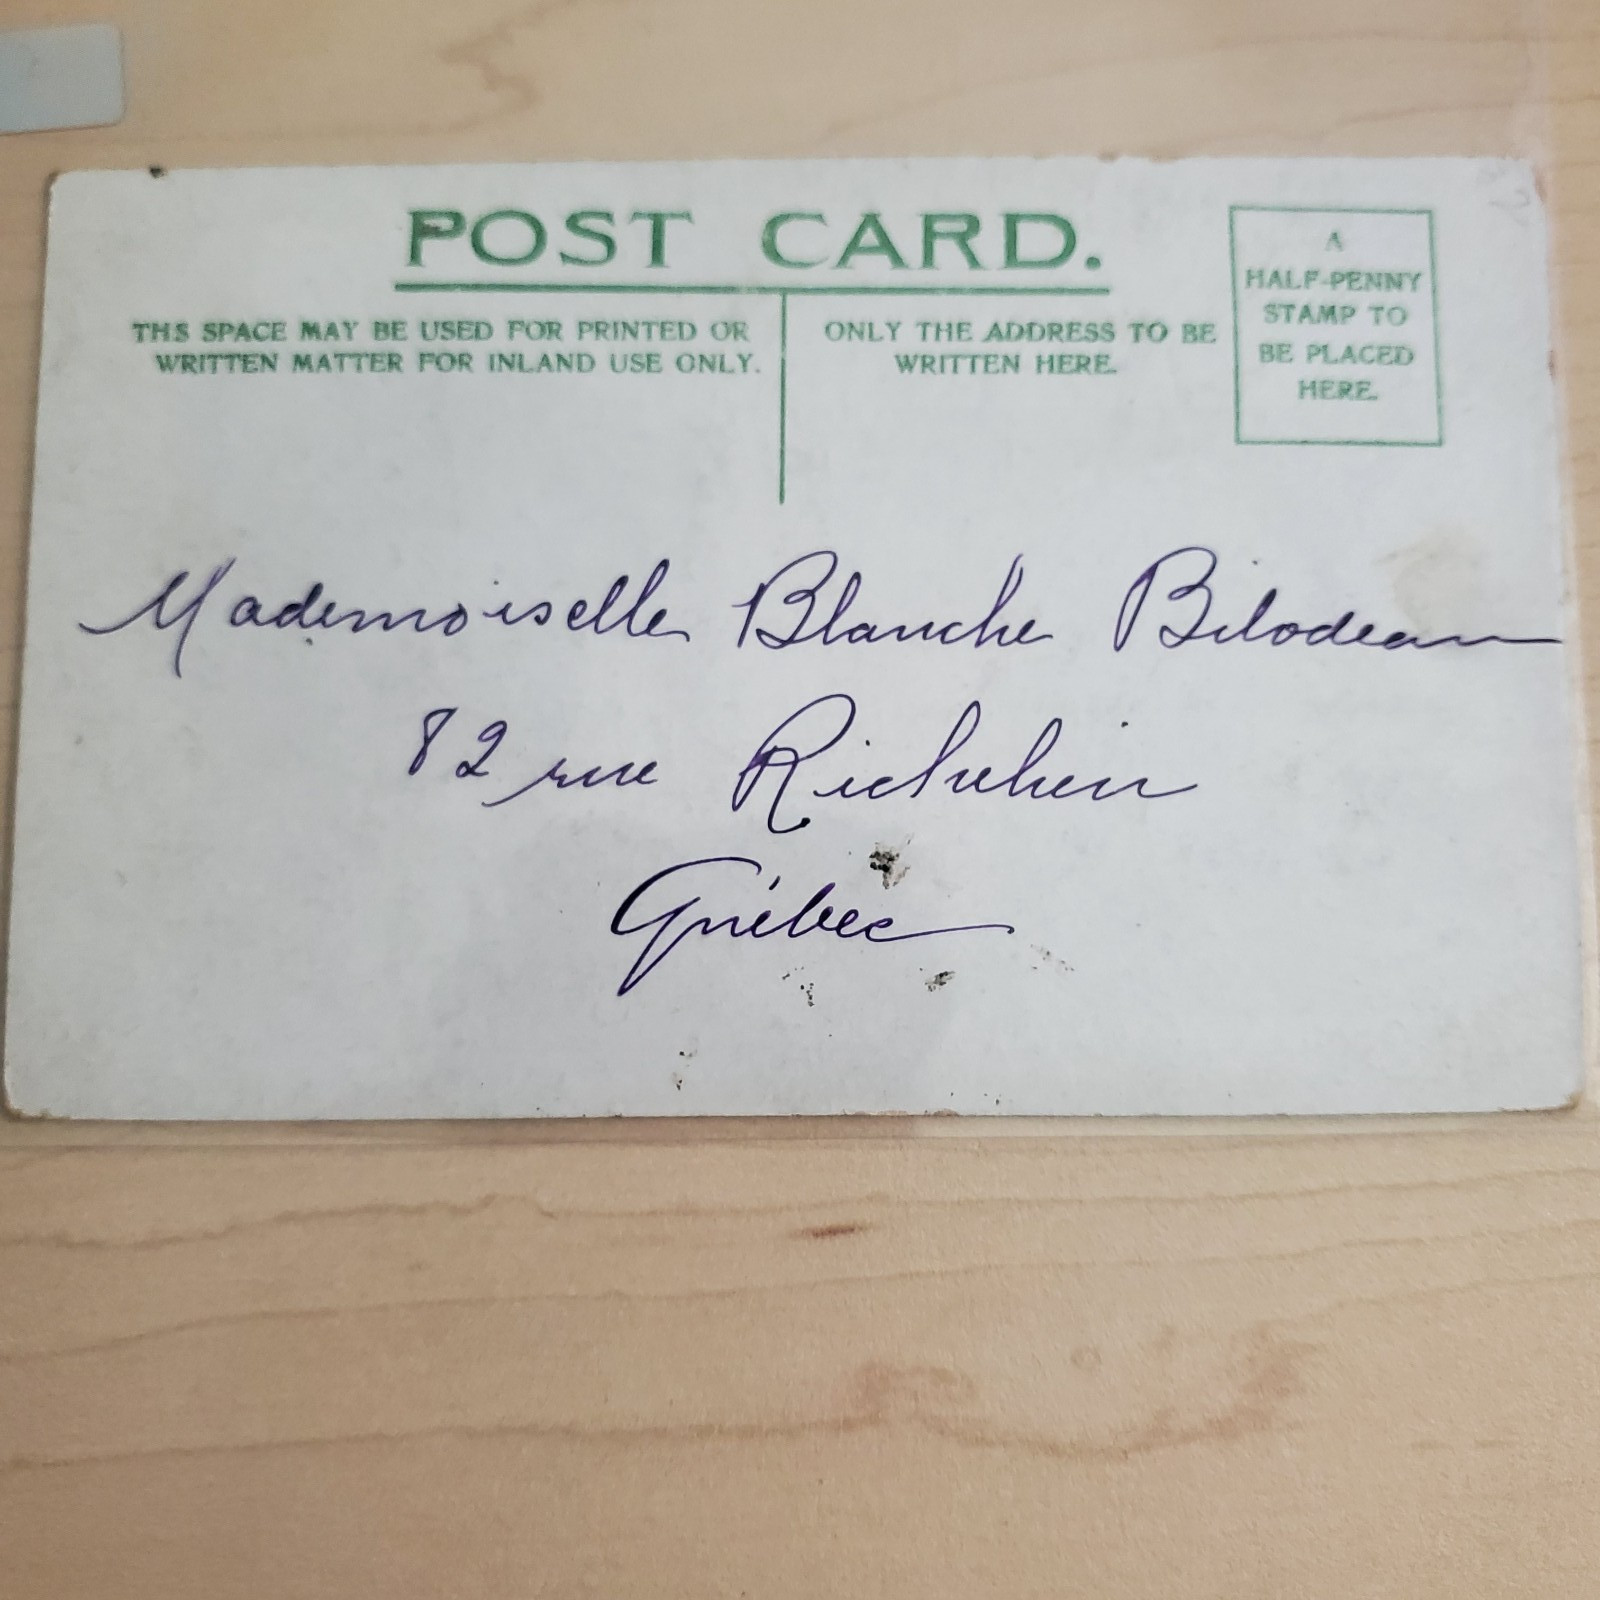 POST CARD.
THS SPACE MAY BE USED FOR PRINTED OR
WRITTEN MATTER FOR INLAND USE ONLY.
ONLY THE ADDRESS TO BE
WRITTEN HERE.
A
HALF-PENNY
STAMP TO
BE PLACED
HERE.
Mademoiselle Blanche Bilodeau
82 rue Richelieu
Québec